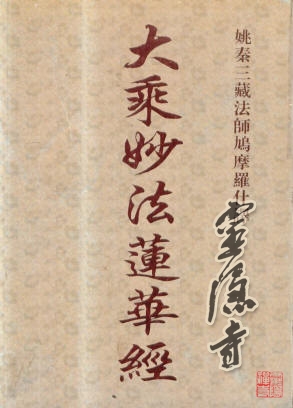 姚秦三藏法師鳩摩羅什
大乘妙法蓮華經
靈隱寺